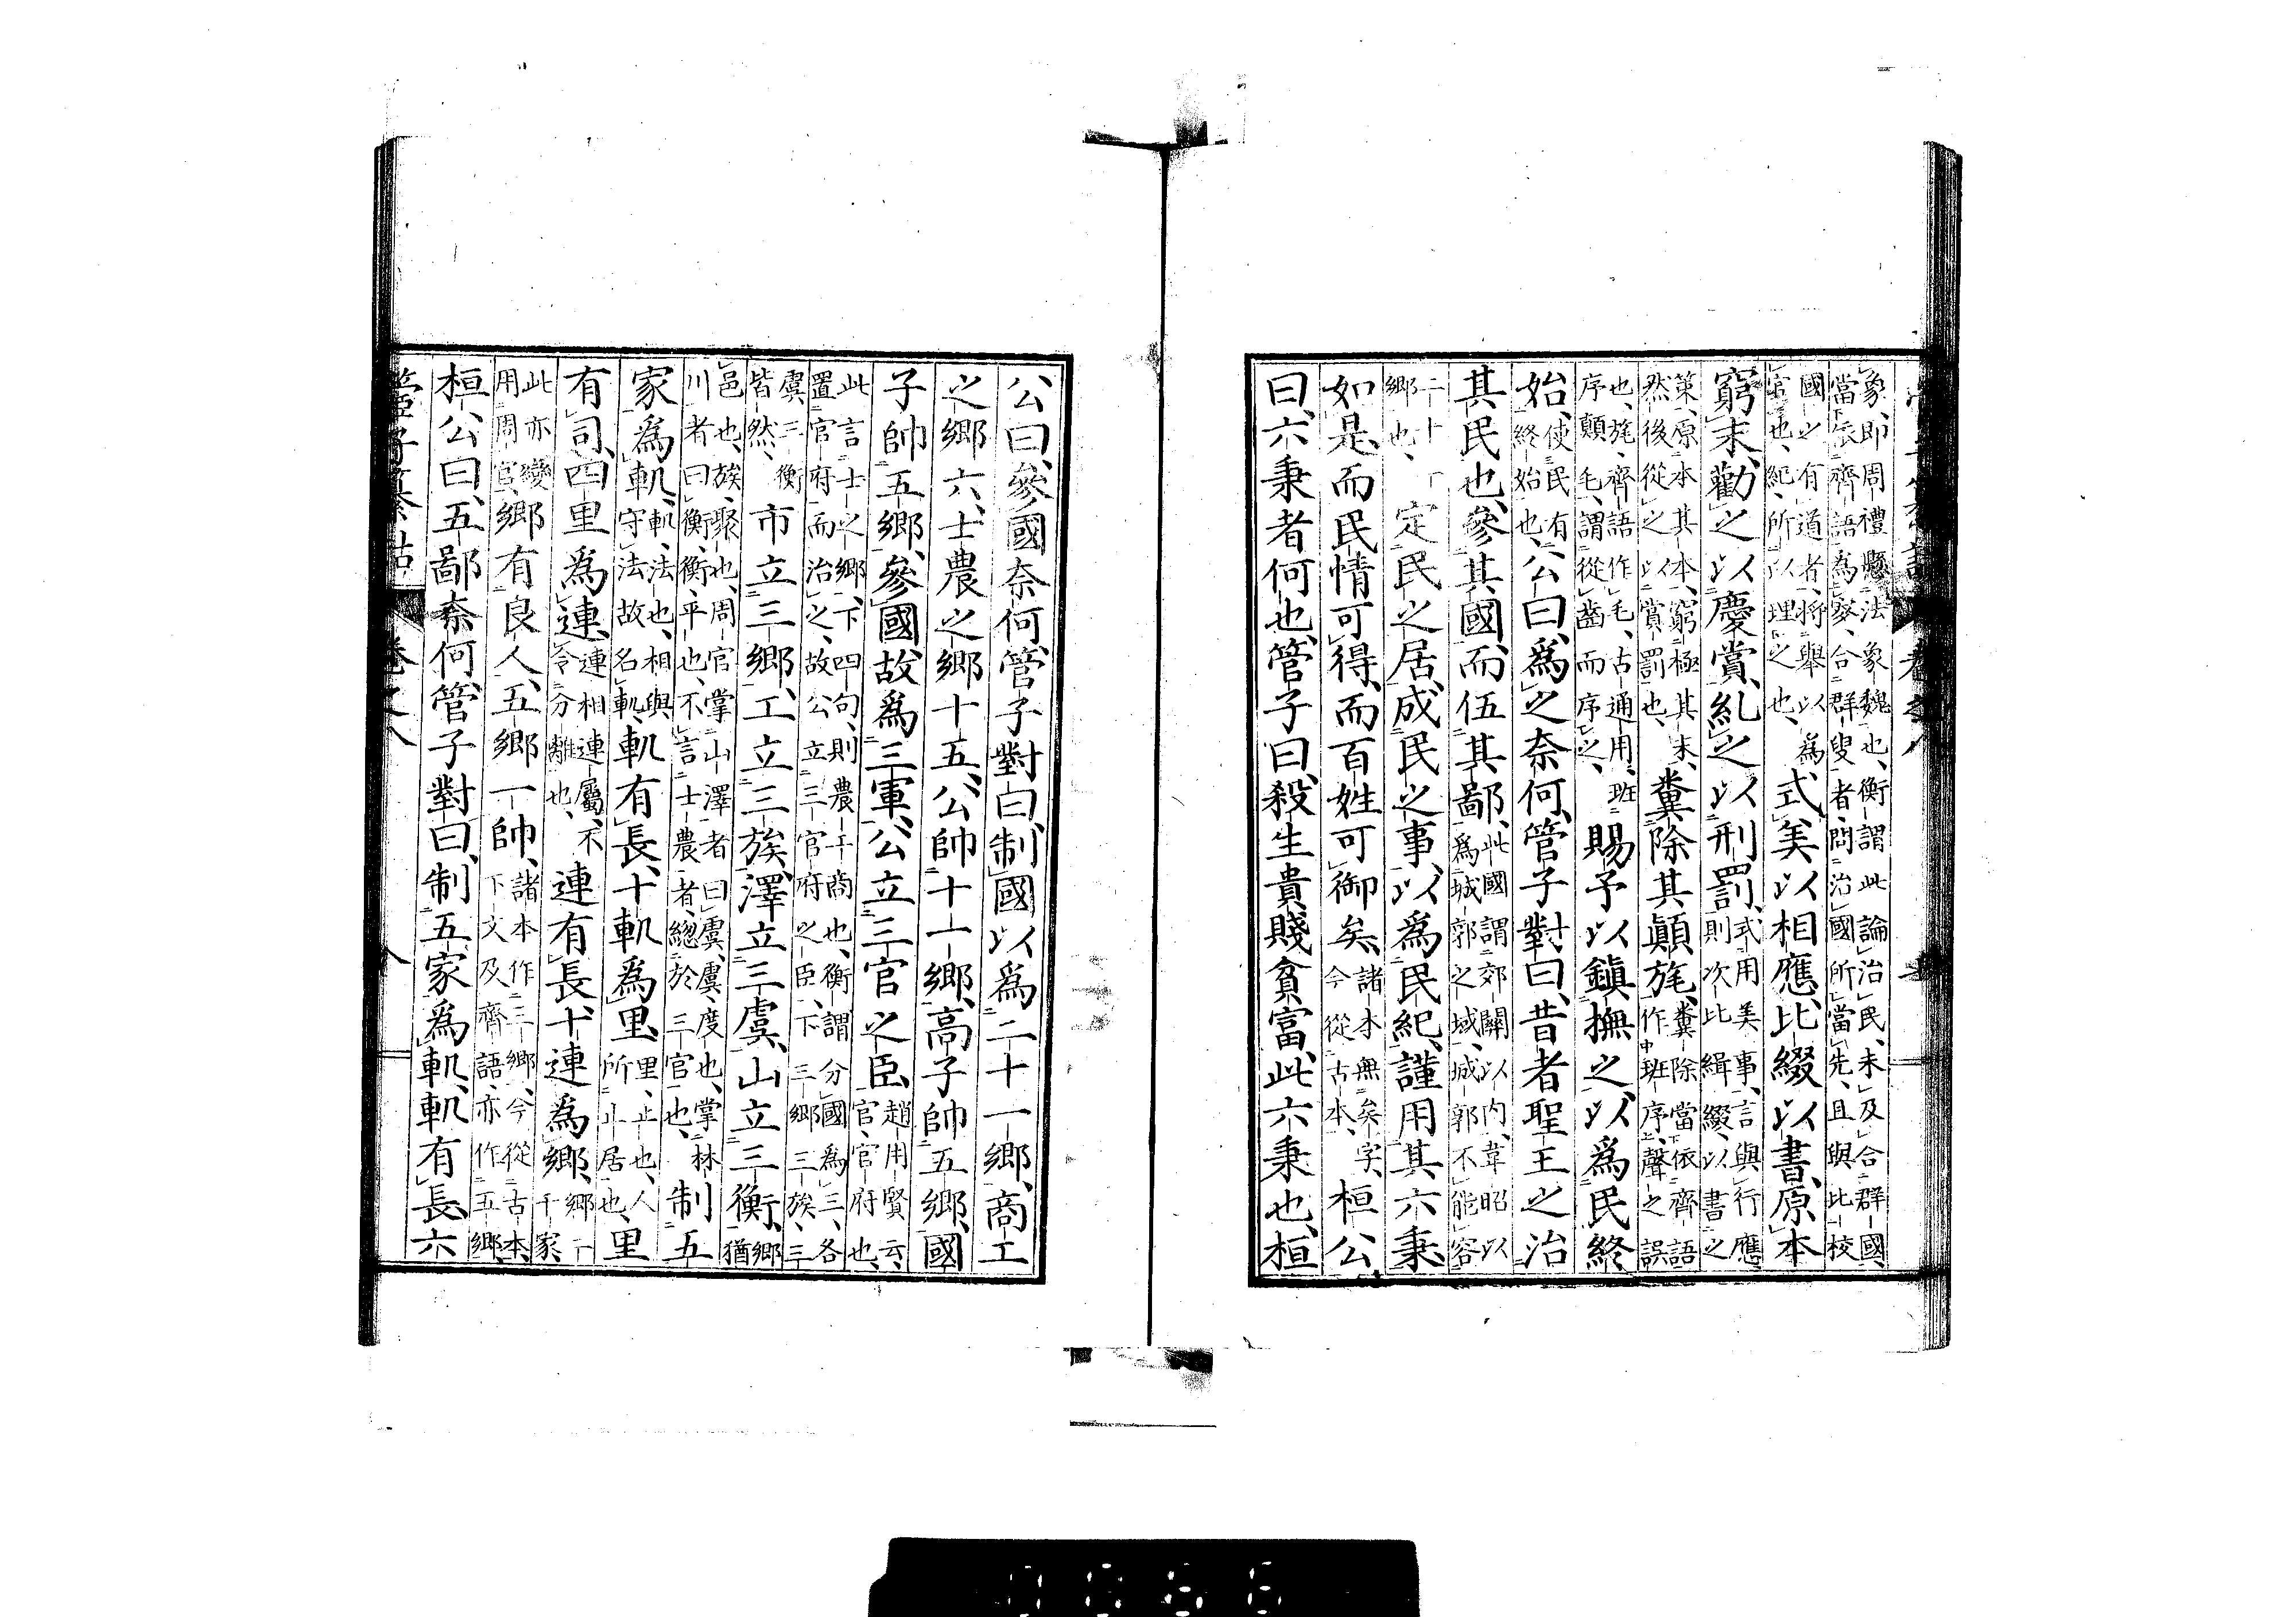 象、即周禮懸法象魏也、衡謂此論治民、未及合群國、
當依齊語為寥、合群叟者、問治國所當先、且與比校
國之有道者、將舉以為
官也、紀、所以理之也、式美以相應、比綴以書、原本
窮末、勸之以慶賞、糺之以刑罰、式用美事、言與行應、
則次比緝綴、以書之
策、原本其本、窮極其末、
然後從之以賞罰也、糞除其顛旄、糞除當依齊語
作班序、聲之誤
也、旄、齊語作毛、古通用、班
序顛毛、謂從齒而序之、賜予以鎮撫之、以爲民終
始、使民有
終始也、公曰、爲之奈何、管子對曰、昔者聖王之治
其民也、參其國、而伍其鄙、此國謂郊關以內、韋昭以
爲城郭之域、城郭不能容
二十一
鄉也、定民之居、成民之事、以爲民紀、謹用其六秉、
如是、而民情可得、而百姓可御矣、諸本無矣字、
今從古本、桓公
曰、六秉者何也、管子曰、殺生貴賤貧富、此六秉也、桓
公曰、參國奈何、管子對曰、制國以爲二十一鄉、商工
之鄉六、士農之鄉十五、公帥十一鄉、高子帥五鄉、國
子帥五鄉、參國故爲三軍、公立三官之臣、趙用賢云、
官、官府也、
此言士之鄉、下四句、則農工商也、衡謂分國為三、各
置官府而治之、故公立三官府之臣、下三鄉三族、三
虞三衡
皆然、市立三鄉、工立三族、澤立三虞、山立三衡、鄉猶
邑也、族、聚也、周官掌山澤者曰虞、虞、度也、掌林
川者曰衡、衡、平也、不言士農者、總於三官也、制五
家爲軌、軌、法也、相與
守法故名軌、軌有長、十軌爲里、里、止也、人
所止居也、里
有司、四里爲連、連相連屬、不
令分離也、連有長、十連爲鄉、鄉二
千家、
此亦變
用周官、鄉有良人、五鄉一帥、諸本作三鄉、今從古本、
下文及齊語、亦作五鄉、
桓公曰、五鄙奈何、管子對曰、制五家爲軌、軌有長、六
管子纂詁 卷之八